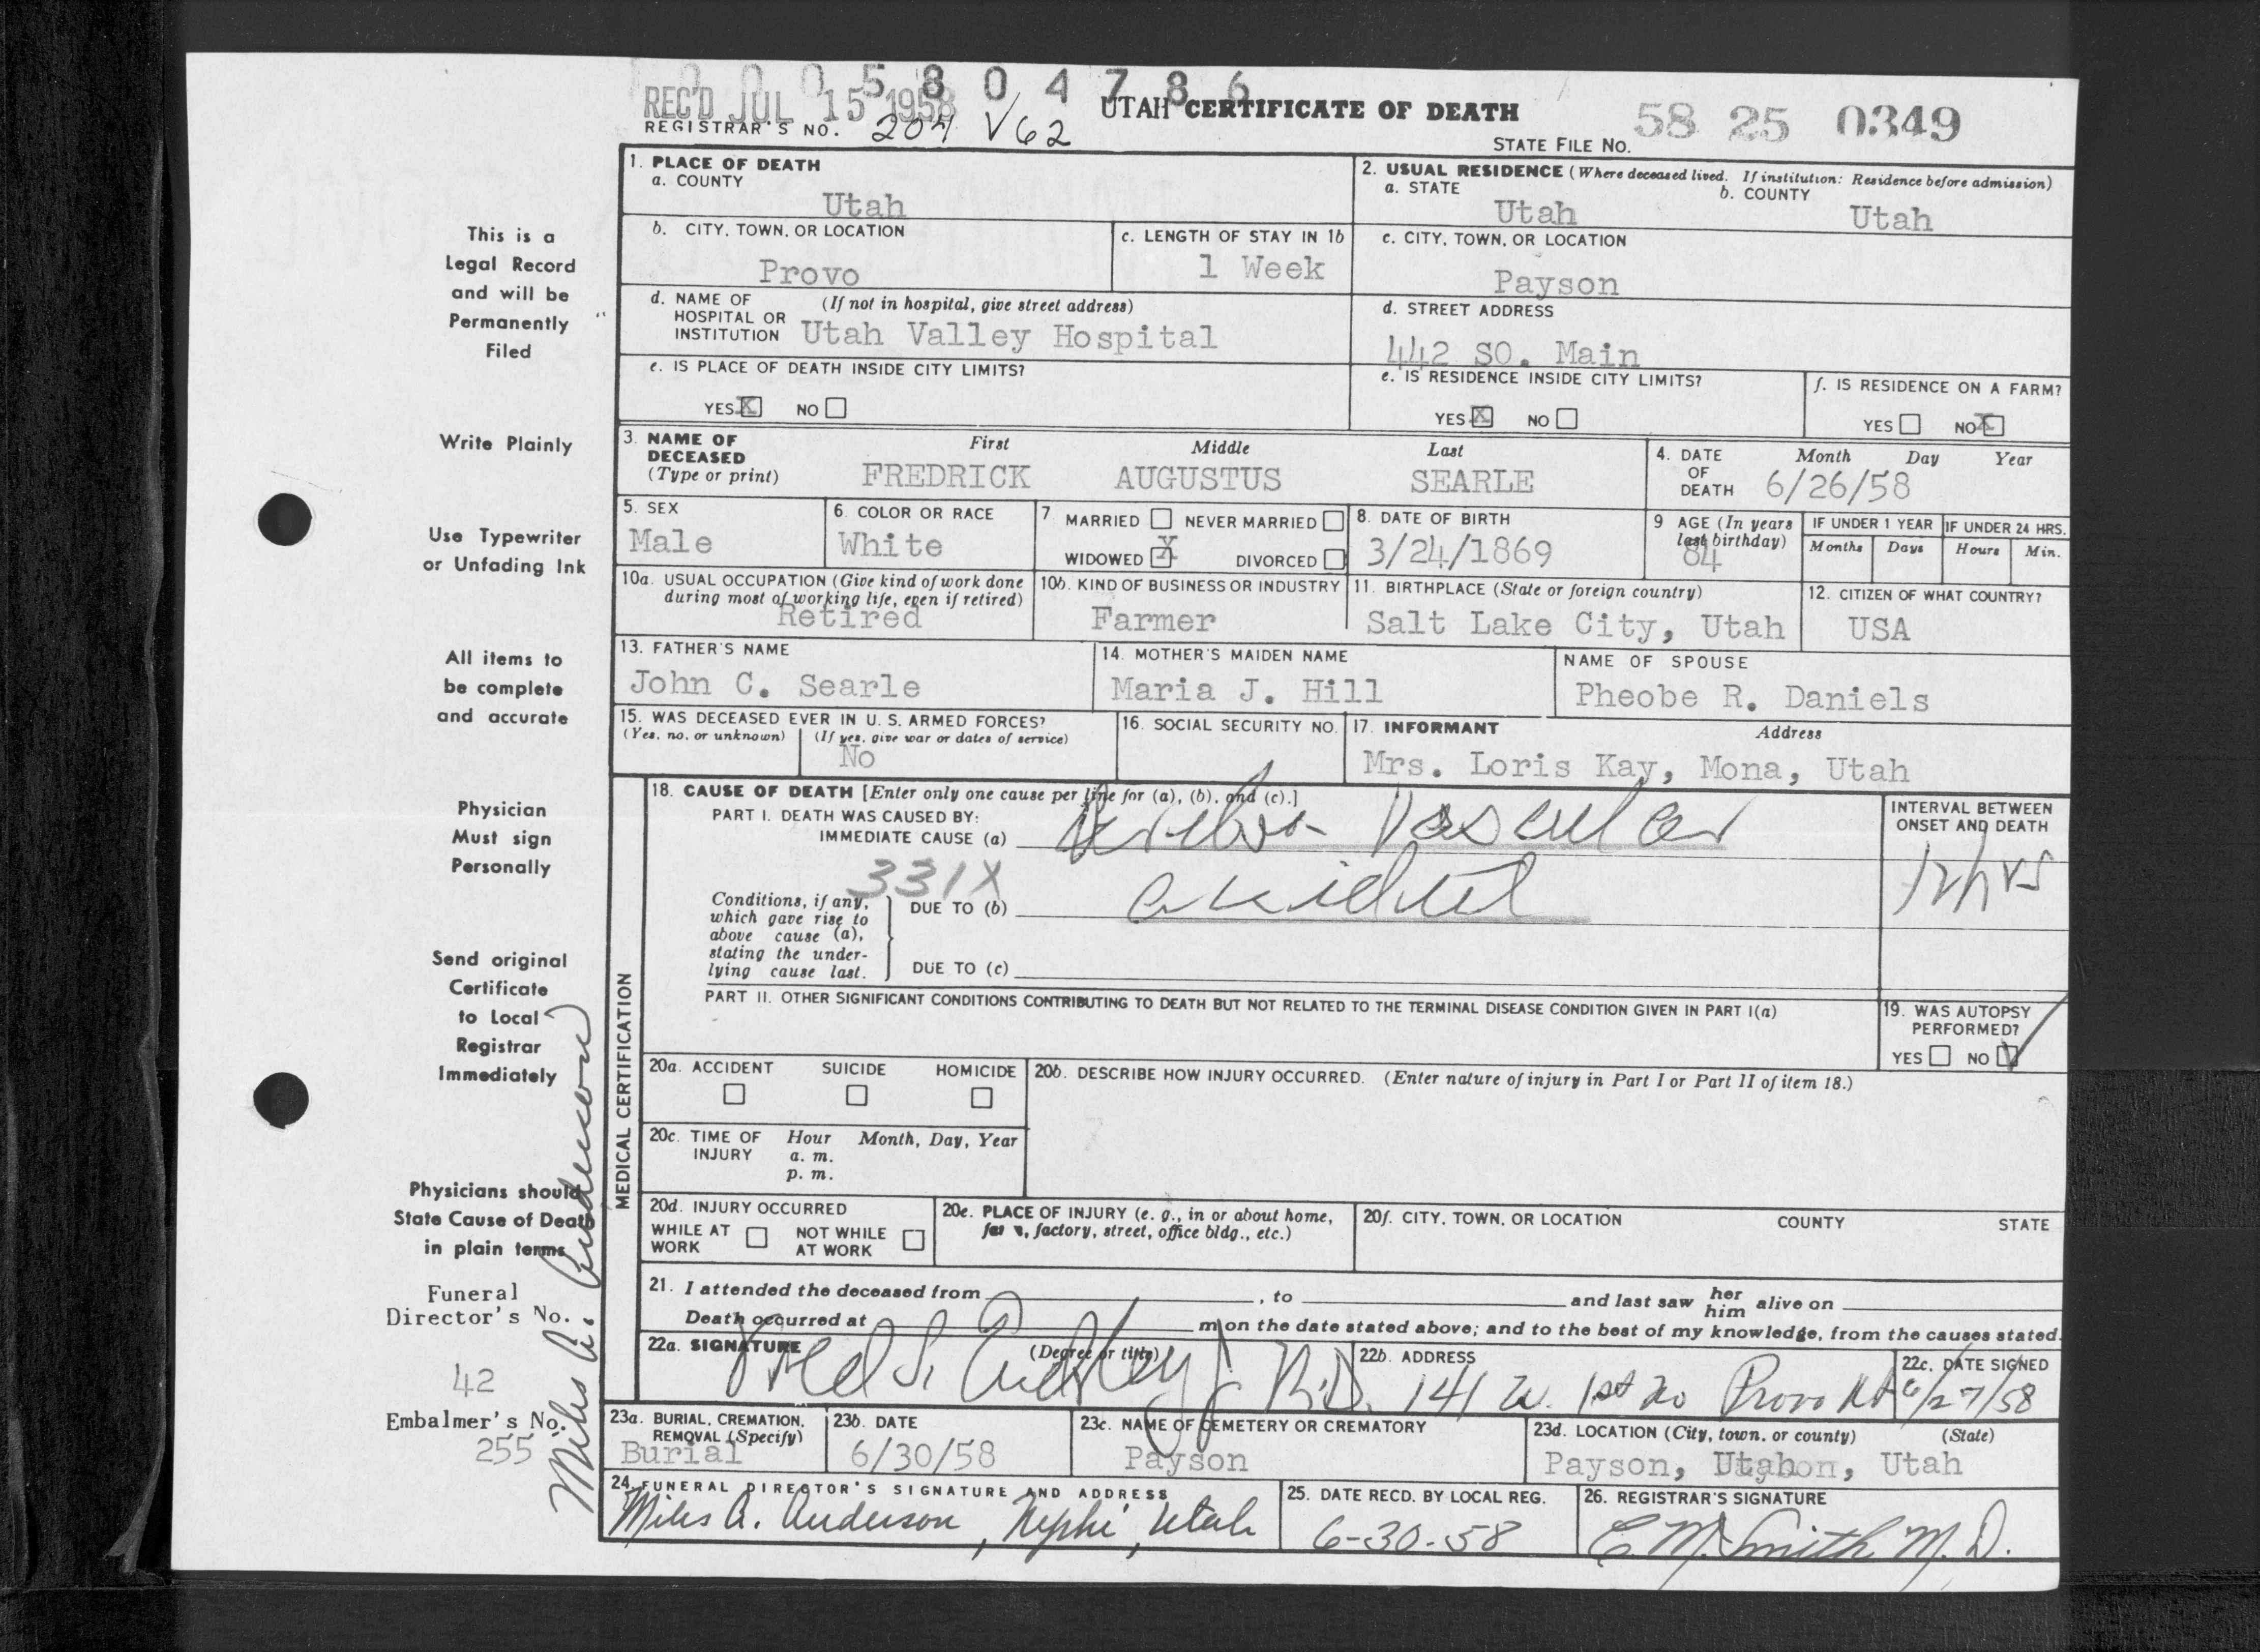 0 0 0 5 8 0 4 7 8 6
REC'D JUL 15 1958
UTAH CERTIFICATE OF DEATH
58 25 0349
REGISTRAR'S NO. 204 V62
STATE FILE No.
1. PLACE OF DEATH
a. COUNTY
Utah
2. USUAL RESIDENCE (Where deceased lived. If institution: Residence before admission)
a. STATE
Utah
b. COUNTY
Utah
b. CITY, TOWN, OR LOCATION
Provo
c. LENGTH OF STAY IN 1b
1 Week
c. CITY, TOWN, OR LOCATION
Payson
d. NAME OF (If not in hospital, give street address)
HOSPITAL OR
INSTITUTION Utah Valley Hospital
d. STREET ADDRESS
442 SO. Main
e. IS PLACE OF DEATH INSIDE CITY LIMITS?
YES X NO
e. IS RESIDENCE INSIDE CITY LIMITS?
YES X NO
f. IS RESIDENCE ON A FARM?
YES NO X
3. NAME OF
DECEASED
(Type or print)
First
FREDRICK
Middle
AUGUSTUS
Last
SEARLE
4. DATE
OF
DEATH
Month Day Year
6/26/58
5. SEX
Male
6. COLOR OR RACE
White
7 MARRIED NEVER MARRIED
WIDOWED X DIVORCED
8. DATE OF BIRTH
3/24/1869
9 AGE (In years
last birthday)
84
IF UNDER 1 YEAR
Months Days
IF UNDER 24 HRS.
Hours Min.
10a. USUAL OCCUPATION (Give kind of work done
during most of working life, even if retired)
Retired
10b. KIND OF BUSINESS OR INDUSTRY
Farmer
11. BIRTHPLACE (State or foreign country)
Salt Lake City, Utah
12. CITIZEN OF WHAT COUNTRY?
USA
13. FATHER'S NAME
John C. Searle
14. MOTHER'S MAIDEN NAME
Maria J. Hill
NAME OF SPOUSE
Pheobe R. Daniels
15. WAS DECEASED EVER IN U. S. ARMED FORCES?
(Yes, no, or unknown) (If yes, give war or dates of service)
No
16. SOCIAL SECURITY NO.
17. INFORMANT Address
Mrs. Loris Kay, Mona, Utah
18. CAUSE OF DEATH [Enter only one cause per line for (a), (b), and (c).]
PART I. DEATH WAS CAUSED BY:
IMMEDIATE CAUSE (a) Vascular
INTERVAL BETWEEN
ONSET AND DEATH
12 hrs
331X
Conditions, if any,
which gave rise to
above cause (a),
stating the under-
lying cause last.
DUE TO (b) accident
DUE TO (c)
PART II. OTHER SIGNIFICANT CONDITIONS CONTRIBUTING TO DEATH BUT NOT RELATED TO THE TERMINAL DISEASE CONDITION GIVEN IN PART I(a)
19. WAS AUTOPSY
PERFORMED?
YES NO
MEDICAL CERTIFICATION
20a. ACCIDENT SUICIDE HOMICIDE
20b. DESCRIBE HOW INJURY OCCURRED. (Enter nature of injury in Part I or Part II of item 18.)
20c. TIME OF
INJURY
Hour Month, Day, Year
a. m.
p. m.
20d. INJURY OCCURRED
WHILE AT
WORK
NOT WHILE
AT WORK
20e. PLACE OF INJURY (e. g., in or about home,
farm, factory, street, office bldg., etc.)
20f. CITY, TOWN, OR LOCATION COUNTY STATE
21. I attended the deceased from , to and last saw her
him alive on
Death occurred at m on the date stated above; and to the best of my knowledge, from the causes stated.
22a. SIGNATURE (Degree or title)
M.D.
22b. ADDRESS
141 W. 1st No Provo Ut
22c. DATE SIGNED
6/27/58
23a. BURIAL, CREMATION,
REMOVAL (Specify)
Burial
23b. DATE
6/30/58
23c. NAME OF CEMETERY OR CREMATORY
Payson
23d. LOCATION (City, town, or county) (State)
Payson, Utah, Utah
24. FUNERAL DIRECTOR'S SIGNATURE AND ADDRESS
Miles A. Anderson, Nephi, Utah
25. DATE RECD. BY LOCAL REG.
6-30-58
26. REGISTRAR'S SIGNATURE
E. M. Smith M. D.
This is a
Legal Record
and will be
Permanently
Filed
Write Plainly
Use Typewriter
or Unfading Ink
All items to
be complete
and accurate
Physician
Must sign
Personally
Send original
Certificate
to Local
Registrar
Immediately
Physicians should
State Cause of Death
in plain terms
Funeral
Director's No.
42
Embalmer's No.
255
Miles A. Anderson